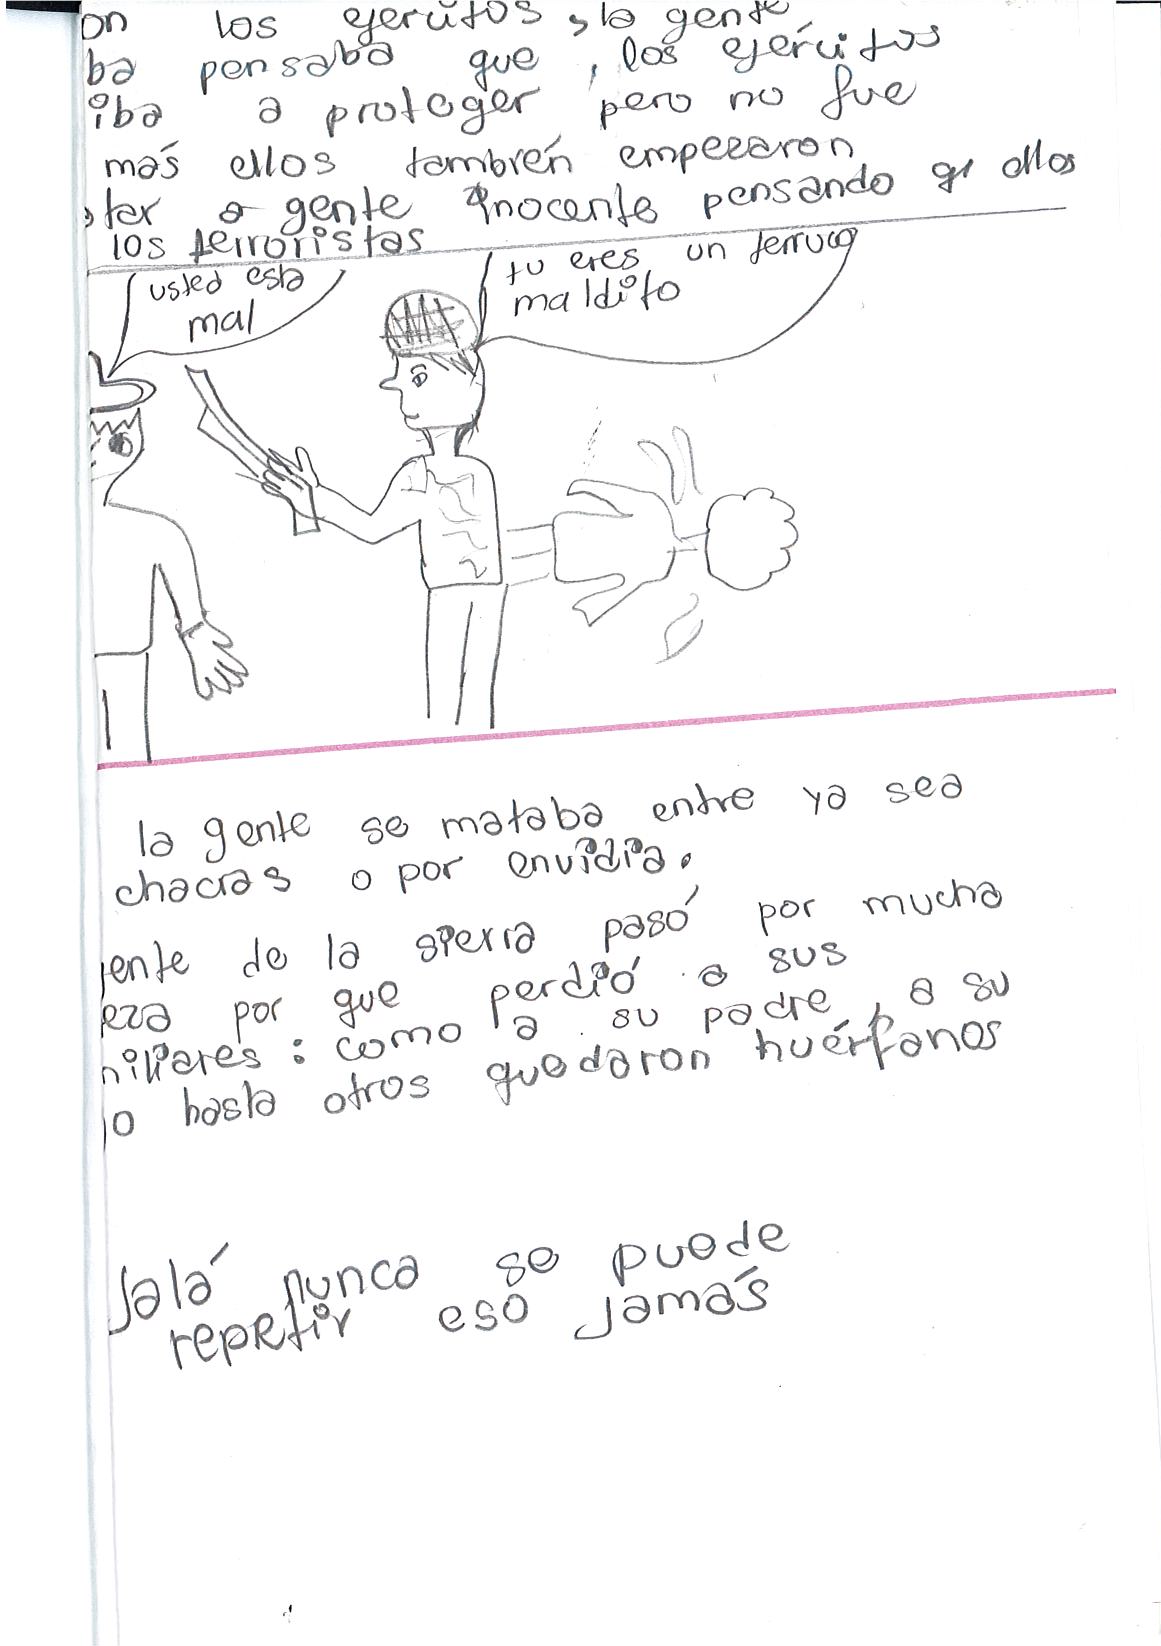 on los ejercitos, la gente
ba pensaba que, los ejércitos
iba a proteger pero no fue
más ellos también empezaron
tar a gente inocente pensando q' ellos
los terroristas
usted esta
mal
tu eres un terruco
maldito
la gente se mataba entre ya sea
chacras o por envidia.
ente de la sierra pasó por mucha
eza por que perdió a sus
miliares: como a su padre, a su
o hasta otros quedaron huérfanos
jalá nunca se puede
repetir eso jamás